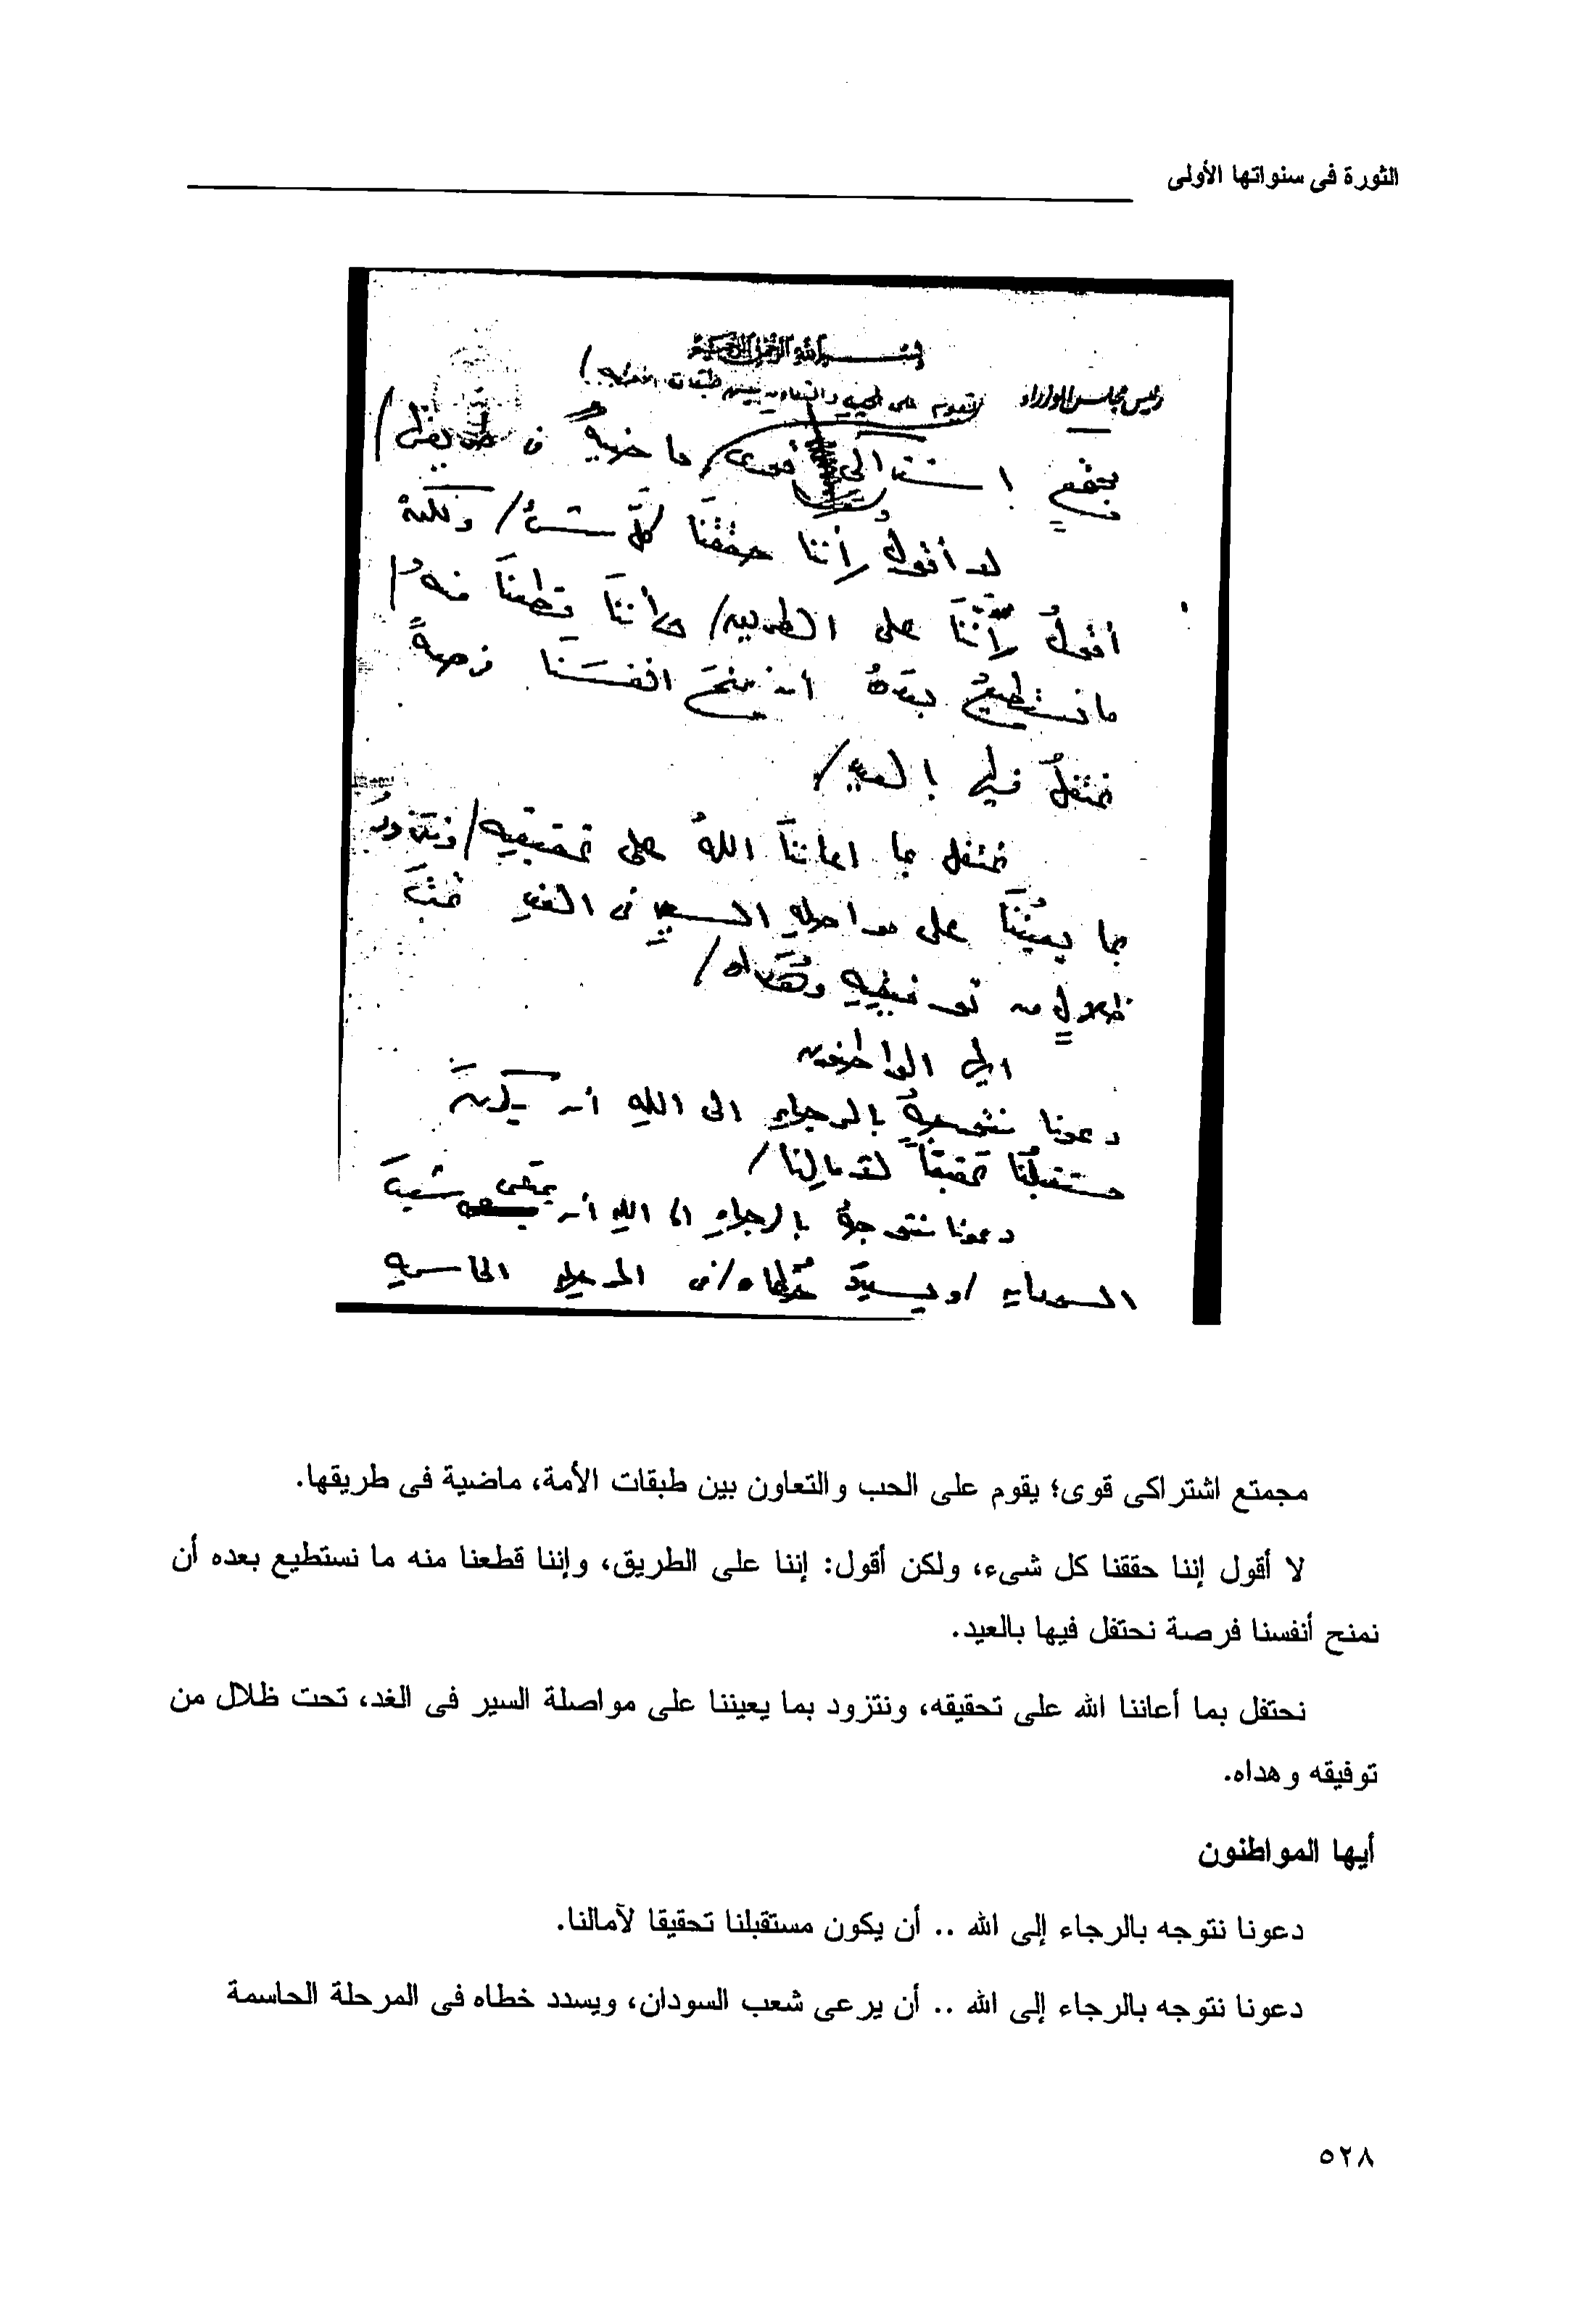 الثورة فى سنواتها الأولى
بسم الله الرحمن الرحيم
رئيس مجلس الوزراء
تقوم على الحب والتعاون بين طبقات الأمة /
مجتمع اشتراكى قوى ماضيةً فى طريقها /
لا أقولُ إننا حققنَا كلَّ شئ / ولكن
أقولُ إنّنَا على الطريق / وأننَا قطعنَا منهُ /
ما نستطيعُ بعدهُ أن نمنحَ انفسَنا فرصةً
نحتفلُ فيها بالعيدِ /
نحتفل بما اعاننَا اللهُ على تحقيقهِ / ونتزودُ
بما يعينُنَا على مواصلةِ السيرِ فى الغدِ تحتَ
ظلالٍ من توفيقِهِ وهُداه /
ايها المواطنون
دعونا نتوجهُ بالرجاءِ الى اللهِ أن يكونَ
مستقبلُنا تحقيقاً لآمالِنا /
دعونا نتوجهُ بالرجاءِ الى اللهِ أن يرعى شعبَ
السودانِ / ويسددَ خُطاه / فى المرحلةِ الحاسمةِ
مجمتع اشتراكى قوى؛ يقوم على الحب والتعاون بين طبقات الأمة، ماضية فى طريقها.
لا أقول إننا حققنا كل شىء، ولكن أقول: إننا على الطريق، وإننا قطعنا منه ما نستطيع بعده أن
نمنح أنفسنا فرصة نحتفل فيها بالعيد.
نحتفل بما أعاننا الله على تحقيقه، ونتزود بما يعيننا على مواصلة السير فى الغد، تحت ظلال من
توفيقه وهداه.
أيها المواطنون
دعونا نتوجه بالرجاء إلى الله .. أن يكون مستقبلنا تحقيقا لآمالنا.
دعونا نتوجه بالرجاء إلى الله .. أن يرعى شعب السودان، ويسدد خطاه فى المرحلة الحاسمة
٥٢٨